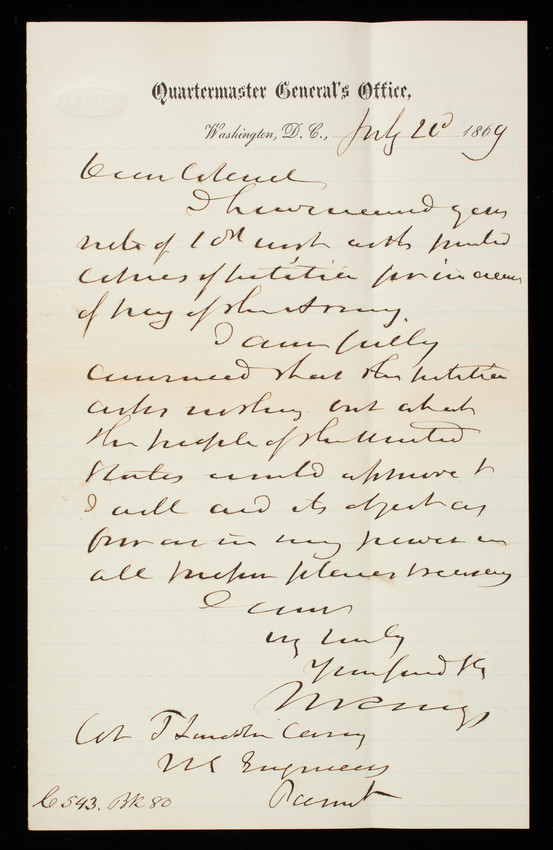 Quartermaster General's Office,
Washington, D. C., July 20 1869
Dear Colonel
I have received your
note of 10th inst with printed
copies of petition for increase
of pay of the Army.
I am fully
convinced that the petition
asks nothing but what
the people of the United
States would approve &
I will aid its object as
far as in my power in
all proper places
I am
very truly
Your friend
Col T Lincoln Casey
US Engineers
Present
C 543. Bk 80